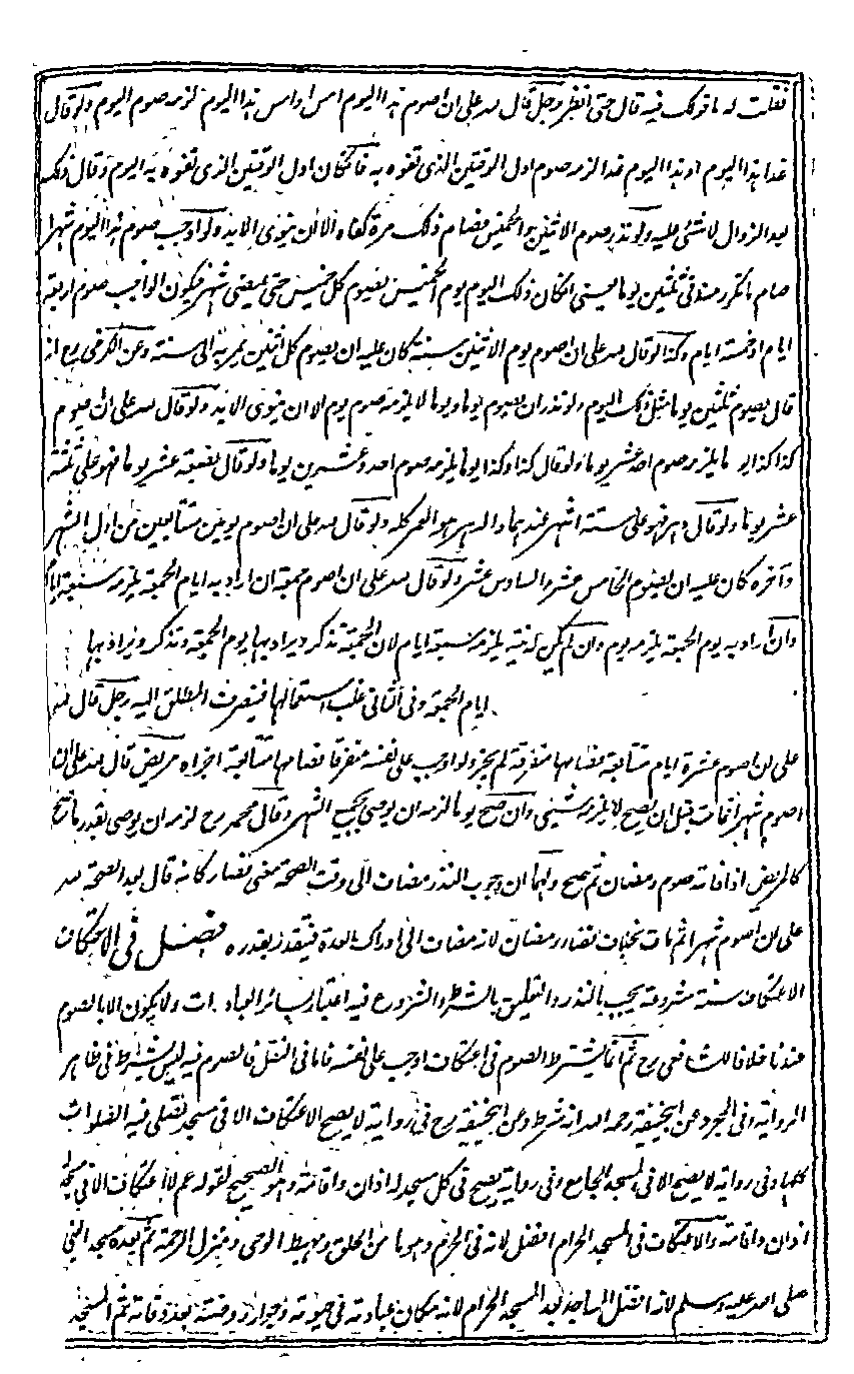 فقلت له ما قولك فيه قال حتى انظر رجل قال لله على ان اصوم هذا اليوم امس او امس هذا اليوم لزمه صوم اليوم ولو قال
غدا هذا اليوم او هذا اليوم غدا لزمه صوم اول الوقتين الذى تفوه به فان كان اول الوقتين الذى تفوه به اليوم وقال ذلك
بعد الزوال لا شئ عليه ولو نذر صوم الاثنين والخميس فصام ذلك مرة كفاه الا ان ينوى الابد ولو اوجب صوم هذا اليوم شهرا
صام ما تكرر منه فى ثلثين يوما يعنى ان كان ذلك اليوم يوم الخميس يصوم كل خميس حتى يمضى شهر فيكون الواجب صوم اربعة
ايام او خمسة ايام وكذا لو قال لله على ان اصوم يوم الاثنين سنة كان عليه ان يصوم كل اثنين يمر به الى سنة وعن الكرخى رح انه
قال يصوم ثلثين يوما مثل ذلك اليوم ولو نذر ان يصوم يوما ويوما لا يلزمه صوم يوم الا ان ينوى الابد ولو قال لله على ان صوم
كذا كذا يوما يلزمه صوم احد عشر يوما ولو قال كذا وكذا يوما يلزمه صوم احد وعشرين يوما ولو قال بضعة عشر يوما فهو على ثلثة
عشر يوما ولو قال دهر فهو على ستة اشهر عندهما والدهر هو العمر كله ولو قال لله على ان اصوم يومين متتابعين من اول الشهر
وآخره كان عليه ان يصوم الخامس عشر والسادس عشر ولو قال لله على ان اصوم جمعة ان اراد به ايام الجمعة يلزمه سبعة ايام
وان اراد به يوم الجمعة يلزمه يوم وان لم يكن له نية يلزمه سبعة ايام لان الجمعة تذكر ويراد بها يوم الجمعة وتذكر ويراد بها
ايام الجمعة وفى الثانى غلب استعمالها فينصرف المطلق اليه رجل قال لله
على ان اصوم عشرة ايام متتابعة فصامها متفرقة لم يجز ولو اوجب على نفسه متفرقا فصامها متتابعة اجزاه مريض قال لله على ان
اصوم شهرا فمات قبل ان يصح لا يلزمه شئ وان صح يوما لزمه ان يوصى بجميع الشهر وقال محمد رح لزمه ان يوصى بقدر ما صح
كالمريض اذا فاته صوم رمضان ثم صح ولهما ان وجوب النذر مضاف الى وقت الصحة معنى فصار كانه قال بعد الصحة لله
على ان اصوم شهرا ثم مات بخلاف قضاء رمضان لانه مضاف الى ادراك العدة فيتقدر بقدره فصل فى الاعتكاف
الاعتكاف سنة مشروعة يجب بالنذر والتعليق بالشرط والشروع فيه اعتبارا بسائر العبادات ولا يكون الا بالصوم
عندنا خلافا للشافعى رح ثم انما يشترط الصوم فى اعتكاف اوجب على نفسه فاما فى النفل فالصوم فيه ليس بشرط فى ظاهر
الرواية وفى المجرد عن ابيحنيفة رحمه الله انه شرط وعن ابيحنيفة رح فى رواية لا يصح الاعتكاف الا فى مسجد تصلى فيه الصلوات
كلها وفى رواية لا يصح الا فى المسجد الجامع وفى رواية يصح فى كل مسجد له اذان واقامة وهو الصحيح لقوله عم لا اعتكاف الا فى مسجد له
اذان واقامة والاعتكاف فى المسجد الحرام افضل لانه فى الحرم وهو مامن الخلق ومهبط الوحى ومنزل الرحمة ثم بعده مسجد النبى
صلى الله عليه وسلم لانه افضل المساجد بعد المسجد الحرام لانه مكان عبادته فى حيوته وجوار روضته بعد وفاته ثم المسجد